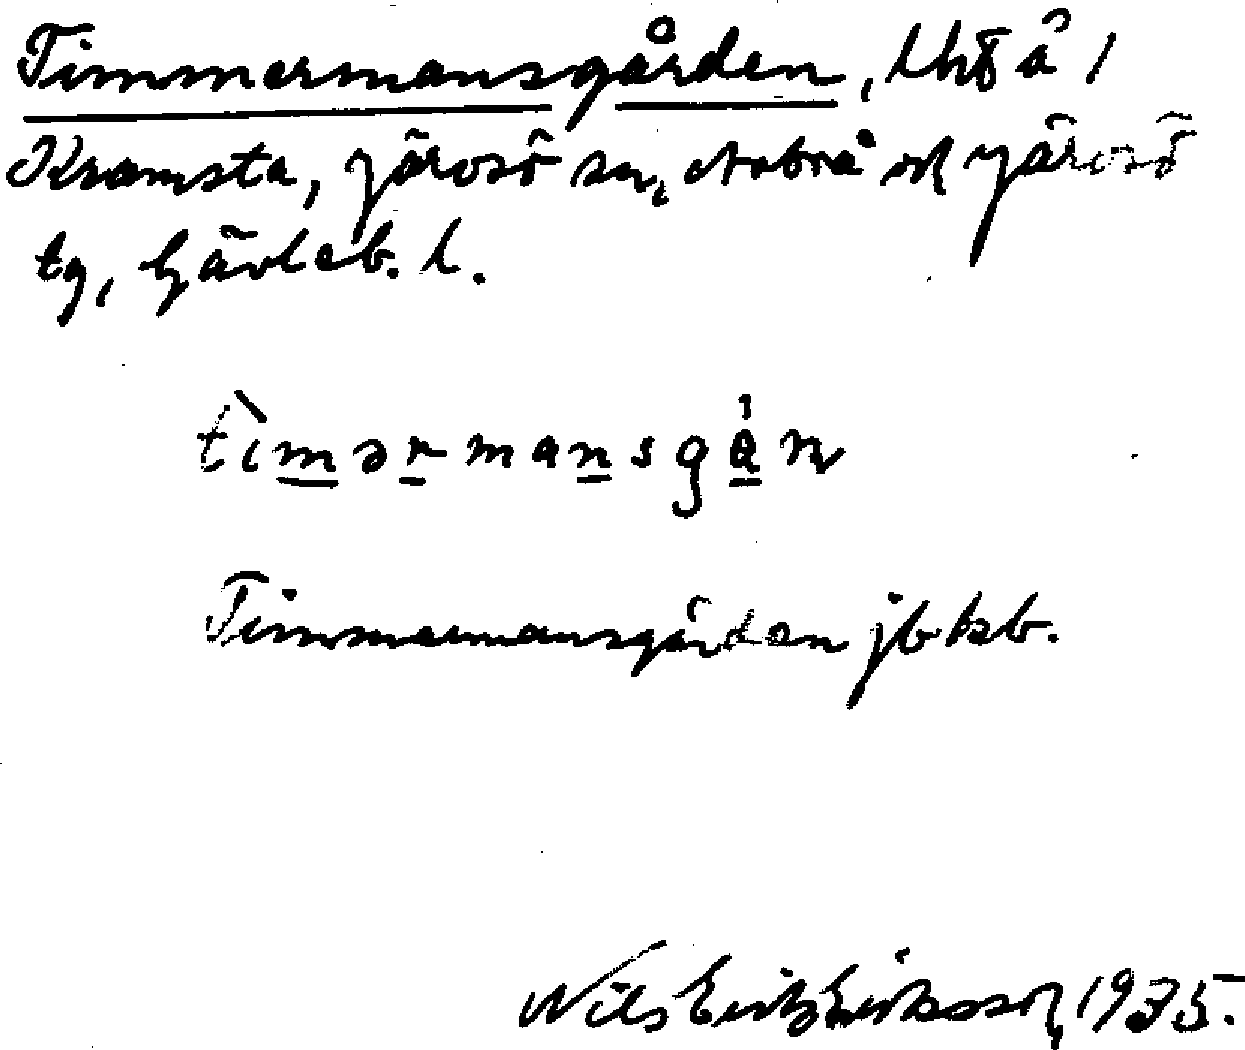 Timmermansgården, lht å 1
Kramsta, Järvsö sn, Arbrå och Järvsö
tg, Gävleb. l.
timərmansgån
Timmermansgården jbkb.
Nils Erik Eriksson, 1935.